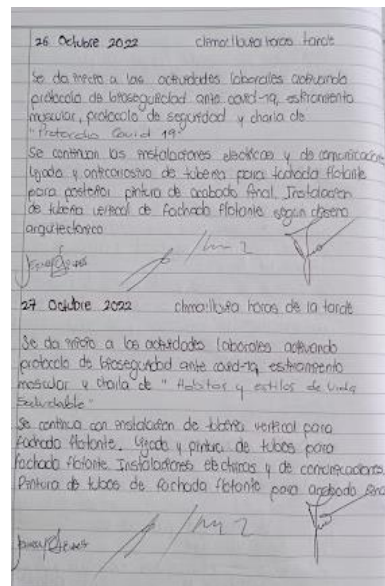 26 Octubre 2022 clima: lluvia horas tarde
Se da inicio a las actividades laborales activando
protocolo de bioseguridad ante covid-19, estiramiento
muscular, protocolo de seguridad y charla de
"Protocolo Covid 19"
Se continuan las instalaciones electricas y de comunicaciones
ligado y anticorrosivo de tuberia para fachada flotante
para posterior pintura de acabado final. Instalacion
de tuberia vertical de fachada flotante segun diseño
arquitectonico
27 Octubre 2022 clima: lluvia horas de la tarde
Se da inicio a las actividades laborales activando
protocolo de bioseguridad ante covid-19, estiramiento
muscular y charla de "Habitos y estilos de vida
Saludable"
Se continua con instalacion de tuberia vertical para
fachada flotante. ligado y pintura de tubos para
fachada flotante. Instalaciones electricas y de comunicaciones.
Pintura de tubos de fachada flotante para acabado final